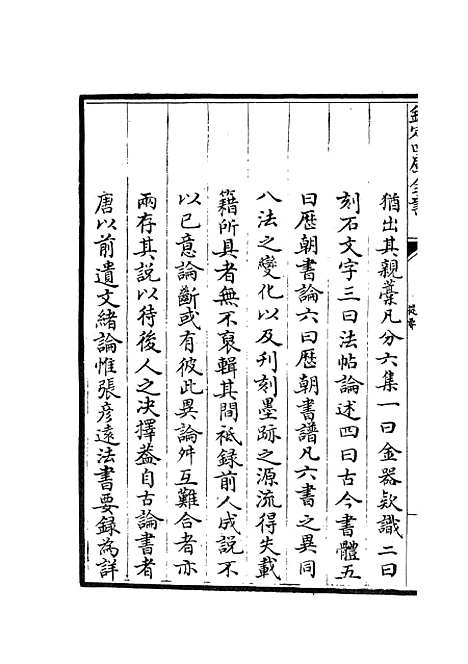 欽定四庫全書
提要
猶出其親藁凡分六集一曰金器欵識二曰
刻石文字三曰法帖論述四曰古今書體五
曰歴朝書論六曰歴朝書譜凡六書之異同
八法之變化以及刋刻墨跡之源流得失載
籍所具者無不裒輯其間祗録前人成說不
以已意論斷或有彼此異論舛互難合者亦
兩存其説以待後人之决擇葢自古論書者
唐以前遺文緒論惟張彦遠法書要録為詳